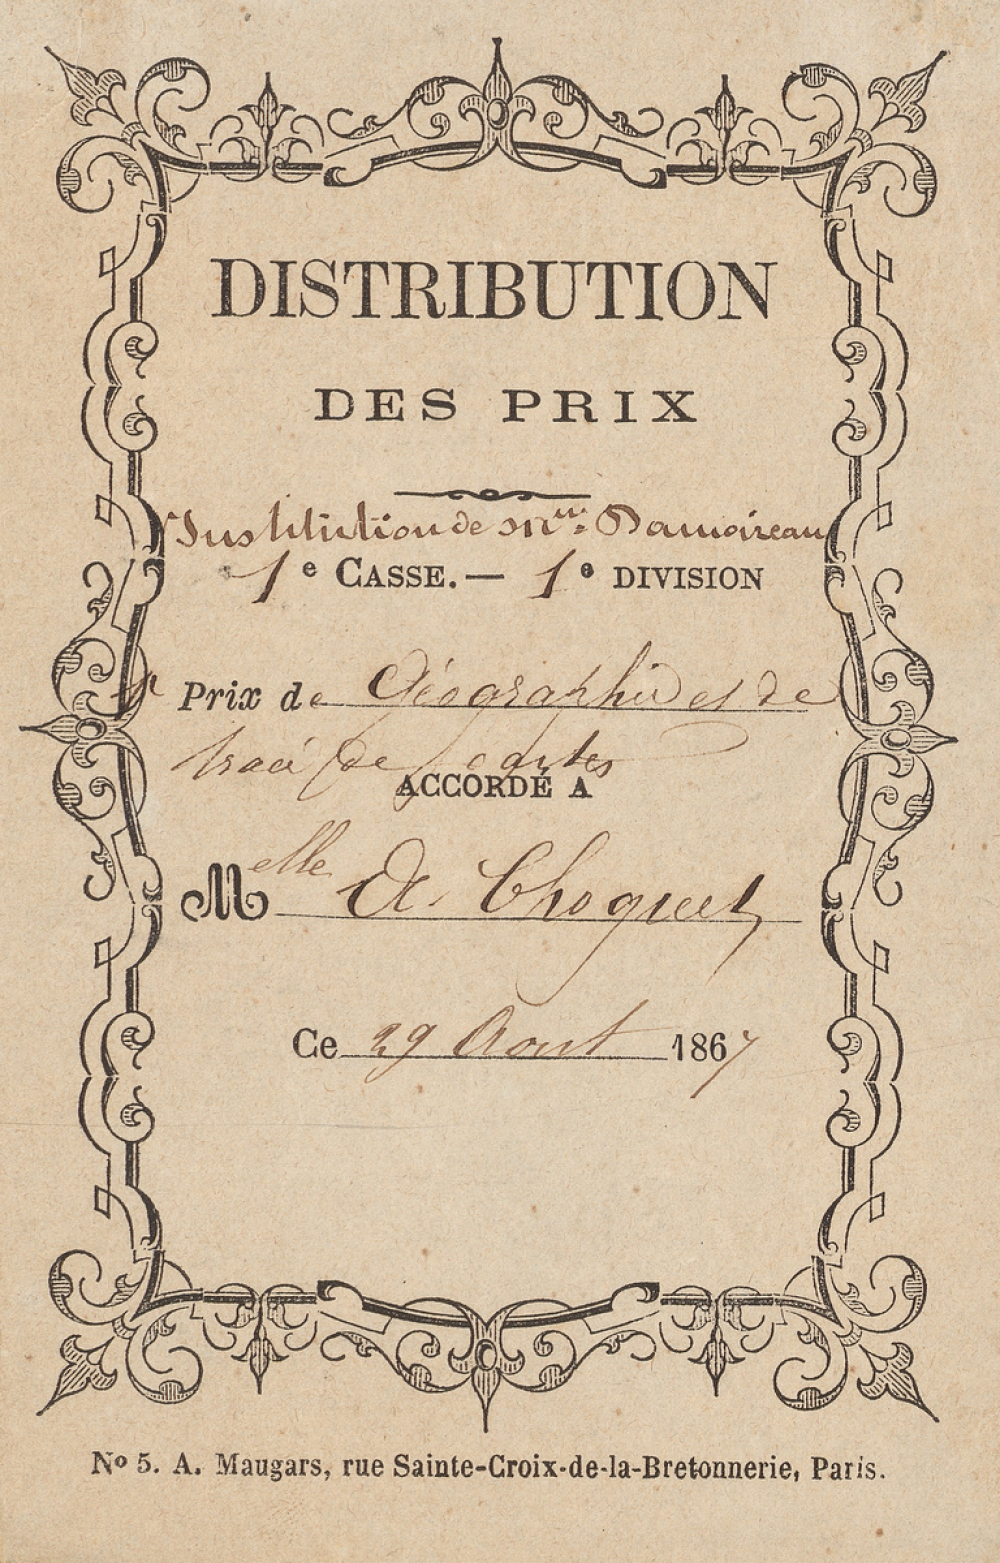 DISTRIBUTION
DES PRIX
Institution de Mme Damoireau
1e CASSE. — 1e DIVISION
Prix de Géographie et de
tracé de cartes
ACCORDÉ A
Melle A. Choquet
Ce 29 Aout 1867
No 5. A. Maugars, rue Sainte-Croix-de-la-Bretonnerie, Paris.